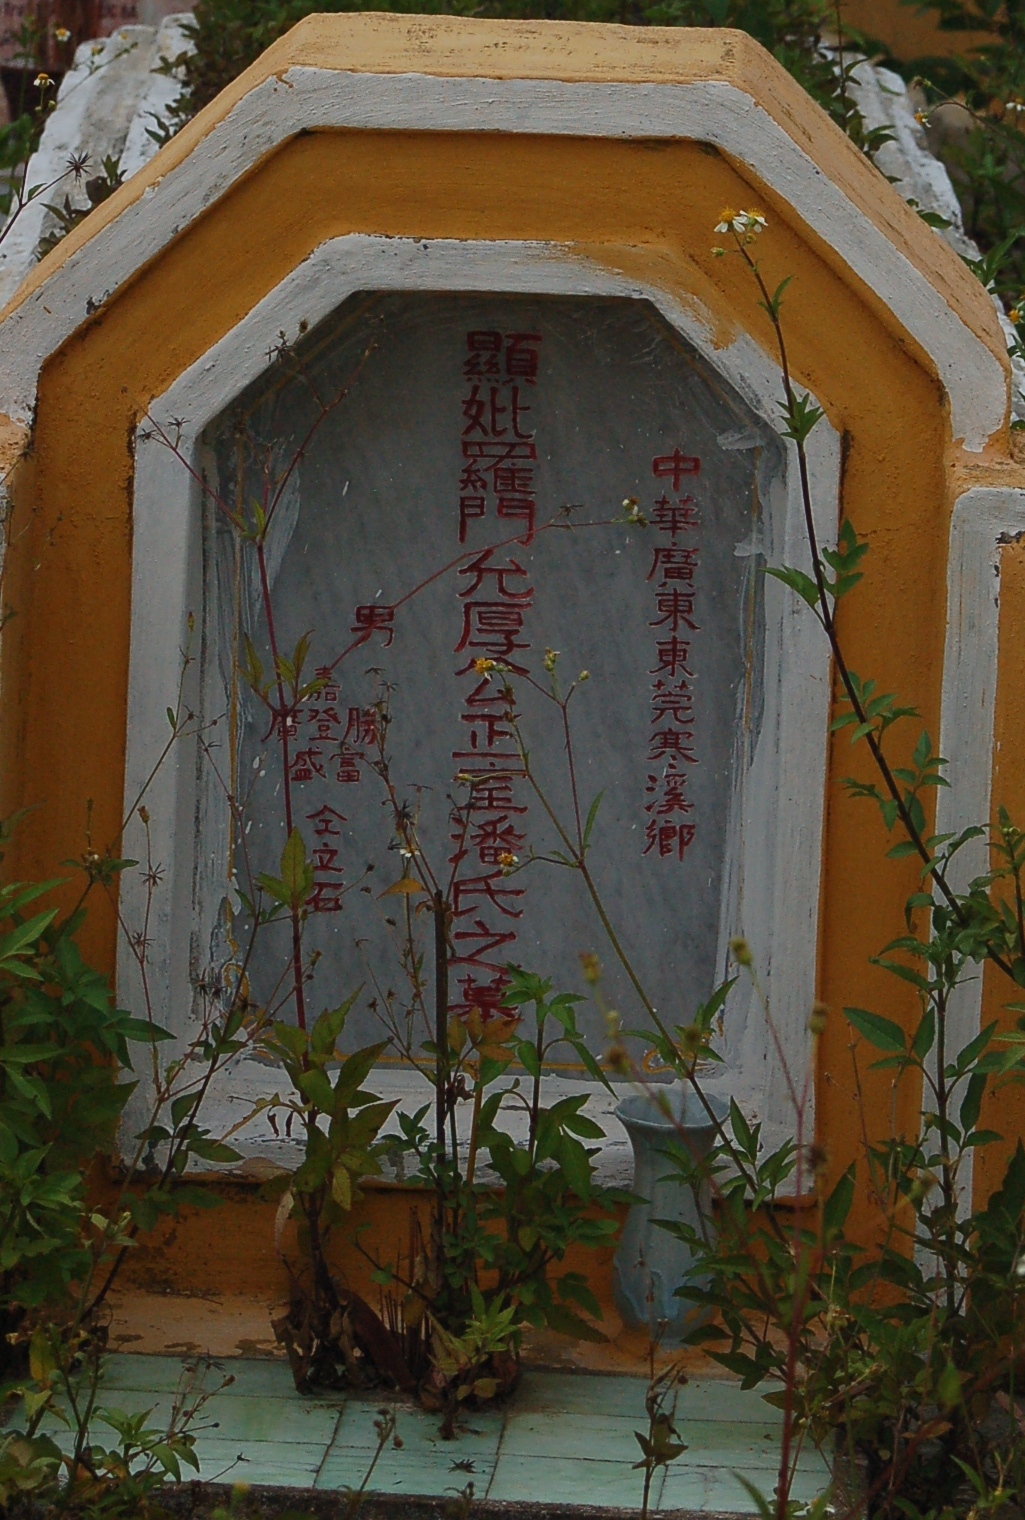 中華廣東東莞寒溪鄉
顯妣羅門允厚公正室潘氏之墓
男
勝富
嘉登盛
仝立石